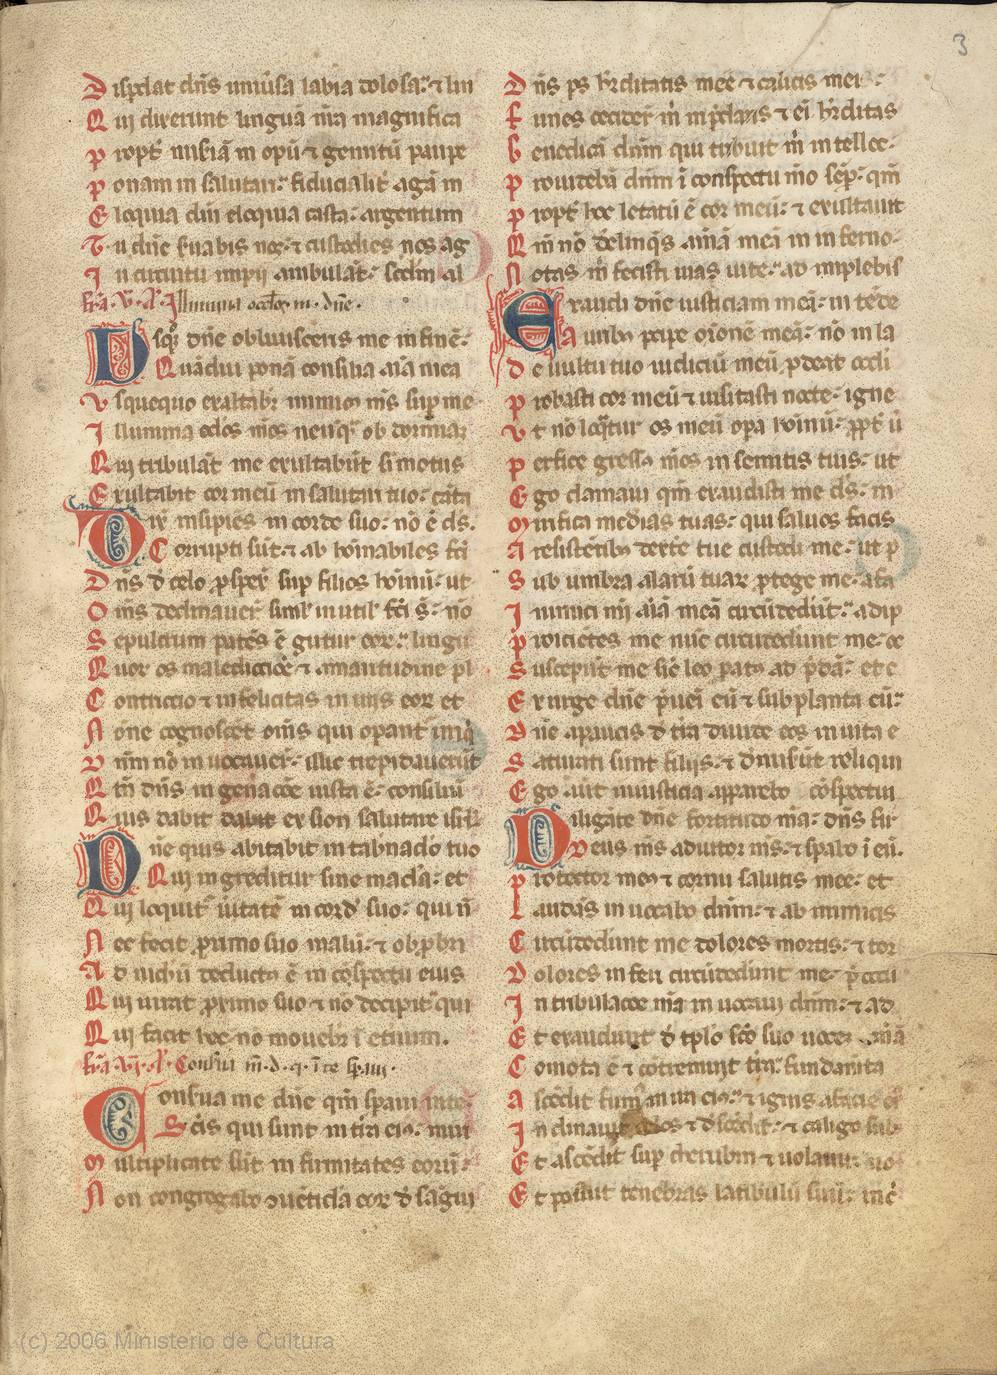 3
Disp̄dat dn̄s uniūsa labia dolosa: ⁊ lin
Qui dixerunt linguā nr̄am magnifica
propt̄ misīā in opū ⁊ gemitū paupe
ponam in salutari: fiducialit̄ agā in
Eloquia dn̄i eloquia casta: argentum
Tu dn̄e s̄uabis nos: ⁊ custodies nos ag
In circuitu impij ambulāt: scd̄m al
fr̄a .v. Illumina oculos m. dn̄e.
Usq̄qo dn̄e obliuisceris me in finē:
Quādiu ponā consilia aīa mea
Vsquequo exaltabr̄ inimic9 m̄s sup̄ me
Illumina ocl̄os meos neūqꝫ ob dormiaꝫ
Qui tribulāt me exultabūt si motus
Exultabit cor meū in salutari tuo: cāta
Dix̄ insipiēs in corde suo: nō ē ds̄.
Corrupti sūt: ⁊ ab hoīnabiles fc̄i
Dn̄s d̄ celo ꝓspex̄ sup̄ filios hoīnū: ut
Oms̄ declinauer̄ siml̄ inutil̄ fc̄i s̄: nō
Sepulcrum patēs ē gutur eoꝝ: lingu
Quoꝝ os maledictiōe ⁊ amaritudine pl
Contricio ⁊ infelicitas in uijs eoꝝ et
None cognoscēt om̄s qui opant̄ iniq̄
Dn̄m nō inuocauer̄: illic trepidauerūt
Qm̄ dn̄s in gen̄acōe iusta ē: consiliū
Quis dabit dabit ex sion salutare isrl̄
Dn̄e quis abitabit in tab̄nac̄lo tuo
Qui ingreditur sine macl̄a: et
Qui loquit̄ ūitatē in cord̄ suo: qui n̄
Nec fecit ꝓximo suo malū: ⁊ obꝓbri
Ad nichū deduct9 ē in cōspectu eius
Qui iurat ꝓximo suo ⁊ nō decipit: qui
Qui facit hec nō mouebr̄ ī et̄num.
fr̄a .vj. Cons̄ua m̄. d. q. ī te sp̄aui.
Conserua me dn̄e qm̄ sp̄aui in te
Scīs qui sunt in tr̄a ei9: miri
Multiplicate sūt infirmitates eorū:
Non congregabo ɔuētic̄la eoꝝ d̄ sāgui
Dn̄s ps̄ hr̄editatis mee ⁊ calicis mei:
funes cecider̄ m̄ in p̄claris ⁊ eī hr̄editas
benedicā dn̄m qui tribuit m̄ intellec:
prouidebā dn̄m ī conspectu m̄o sēp: qm̄
propt̄ hoc letatū ē cor meū: ⁊ exultauit
Qm̄ nō d̄elinq̄s aīmā meā in inferno:
Notas m̄ fecisti uias uite: ad implebis
Exaudi dn̄e iusticiam meā: intēde
Aurib9 p̄cipe or̄onē meā: nō in la
de uultu tuo iudiciū meū ꝓdeat ocl̄i
probasti cor meū ⁊ uisitasti nocte: igne
Vt nō loq̄tur os meū opa hoīnū: ꝓpt̄ ū
perfice gress9 m̄os in semitis tuis: ut
Ego clamaui qm̄ exaudisti me ds̄: in
Mirifica mīas tuas: qui saluos facis
A resistētib9 dextre tue custodi me: ut p
Sub umbra alarū tuaꝝ ꝓtege me: a fa
Inimici mi aīā meā circūdedūt: adip
proicietes me nūc circūdedunt me: oc
Suscepūt me sic̄ leo parat9 ad p̄dā: et c
Exurge dn̄e p̄uei eū ⁊ subplanta eū:
Dn̄e apaucis d̄ tr̄a diuide eos in uita e
Saturati sunt filijs: ⁊ d̄imis̄ūt reliqui
Ego aūt in iusticia apparebo cōspectui
Diligā te dn̄e fortitudo mā: dn̄s fir
Deus m̄s adiutor m̄s: ⁊ sp̄abo ī eū.
protector me9 ⁊ cornu salutis mee: et
Laudās inuocabo dn̄m: ⁊ ab inimicis
Circūdedunt me dolores mortis: ⁊ tor
Dolores inferi circūdedunt me: p̄occu
In tribulacōe mā inuocaui dn̄m: ⁊ ad
Et exaudiuit d̄ tēplo scō suo uocē mēā
Comota ē ⁊ cōtremuit tr̄a: fundam̄ta
ascēdit fum9 in ira ei9: ⁊ ignis a facie ei
Inclinauit celos ⁊ d̄scēdit: ⁊ caligo sub
Et ascēdit sup̄ cherubin ⁊ uolauit: uo
Et posuit tenebras latibulū suū: in c̄
(c) 2006 Ministerio de Cultura